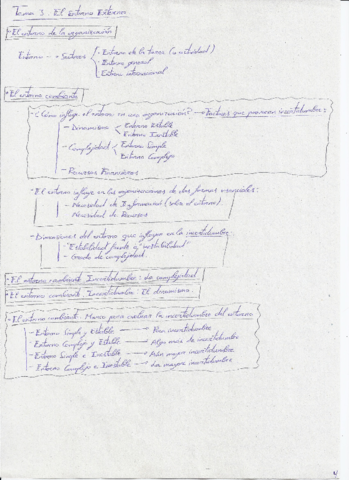 Tema 3. El Entorno Externo
- El entorno de la organización
Entorno → Sectores
- Entorno de la tarea (o actividad)
- Entorno general
- Entorno internacional
- El entorno cambiante
- ¿Cómo influye el entorno en una organización? → Factores que provocan incertidumbre:
- Dinamismo
Entorno Estable
Entorno Inestable
- Complejidad
Entorno Simple
Entorno Complejo
- Recursos Financieros
- El entorno influye en las organizaciones de dos formas
- Necesidad de Información (sobre el entorno).
- Necesidad de Recursos
- Dimensiones del entorno que influyen en la incertidumbre:
- Estabilidad frente a "inestabilidad"
- Grado de complejidad.
- El entorno cambiante. Incertidumbre: La complejidad
- El entorno cambiante. Incertidumbre: El dinamismo.
- El entorno cambiante: Marco para evaluar la incertidumbre del entorno
- Entorno Simple y Estable → incertidumbre
- Entorno Complejo y Estable → Algo más de incertidumbre
- Entorno Simple e Inestable → Aún mayor incertidumbre
- Entorno Complejo e Inestable → La mayor incertidumbre